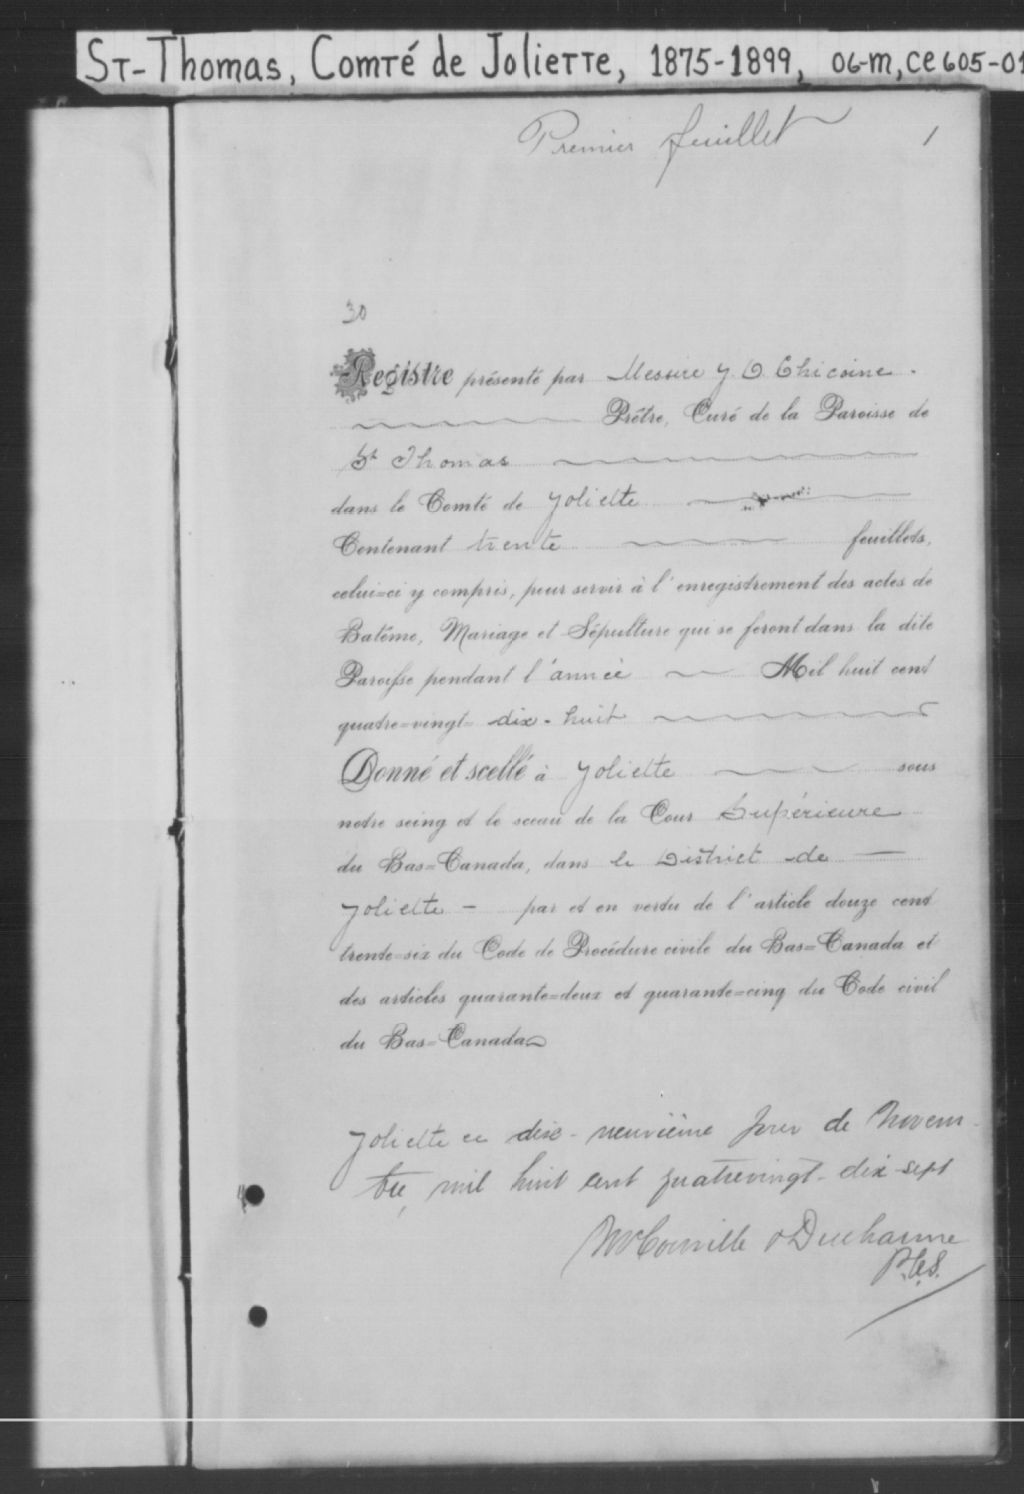 St-Thomas, Comté de Joliette, 1875-1899, 06-M, CE605-01
Premier feuillet 1
30
Registre présenté par Messire J. O. Chicoine.
Prêtre, Curé de la Paroisse de
St Thomas
dans le Comté de Joliette
Contenant trente feuillets,
celui=ci y compris, pour servir à l'enregistrement des actes de
Batême, Mariage et Sépulture qui se feront dans la dite
Paroisse pendant l'année Mil huit cent
quatre=vingt= dix-huit
Donné et scellé à Joliette sous
notre seing et le sceau de la Cour Supérieure
du Bas=Canada, dans le District de
Joliette - par et en vertu de l'article douze cent
trente=six du Code de Procédure civile du Bas=Canada et
des articles quarante=deux et quarante=cinq du Code civil
du Bas=Canada
Joliette ce dix-neuvième jour de Novem-
bre, mil huit cent quatrevingt-dix-sept
& Ducharme
P.C.S.